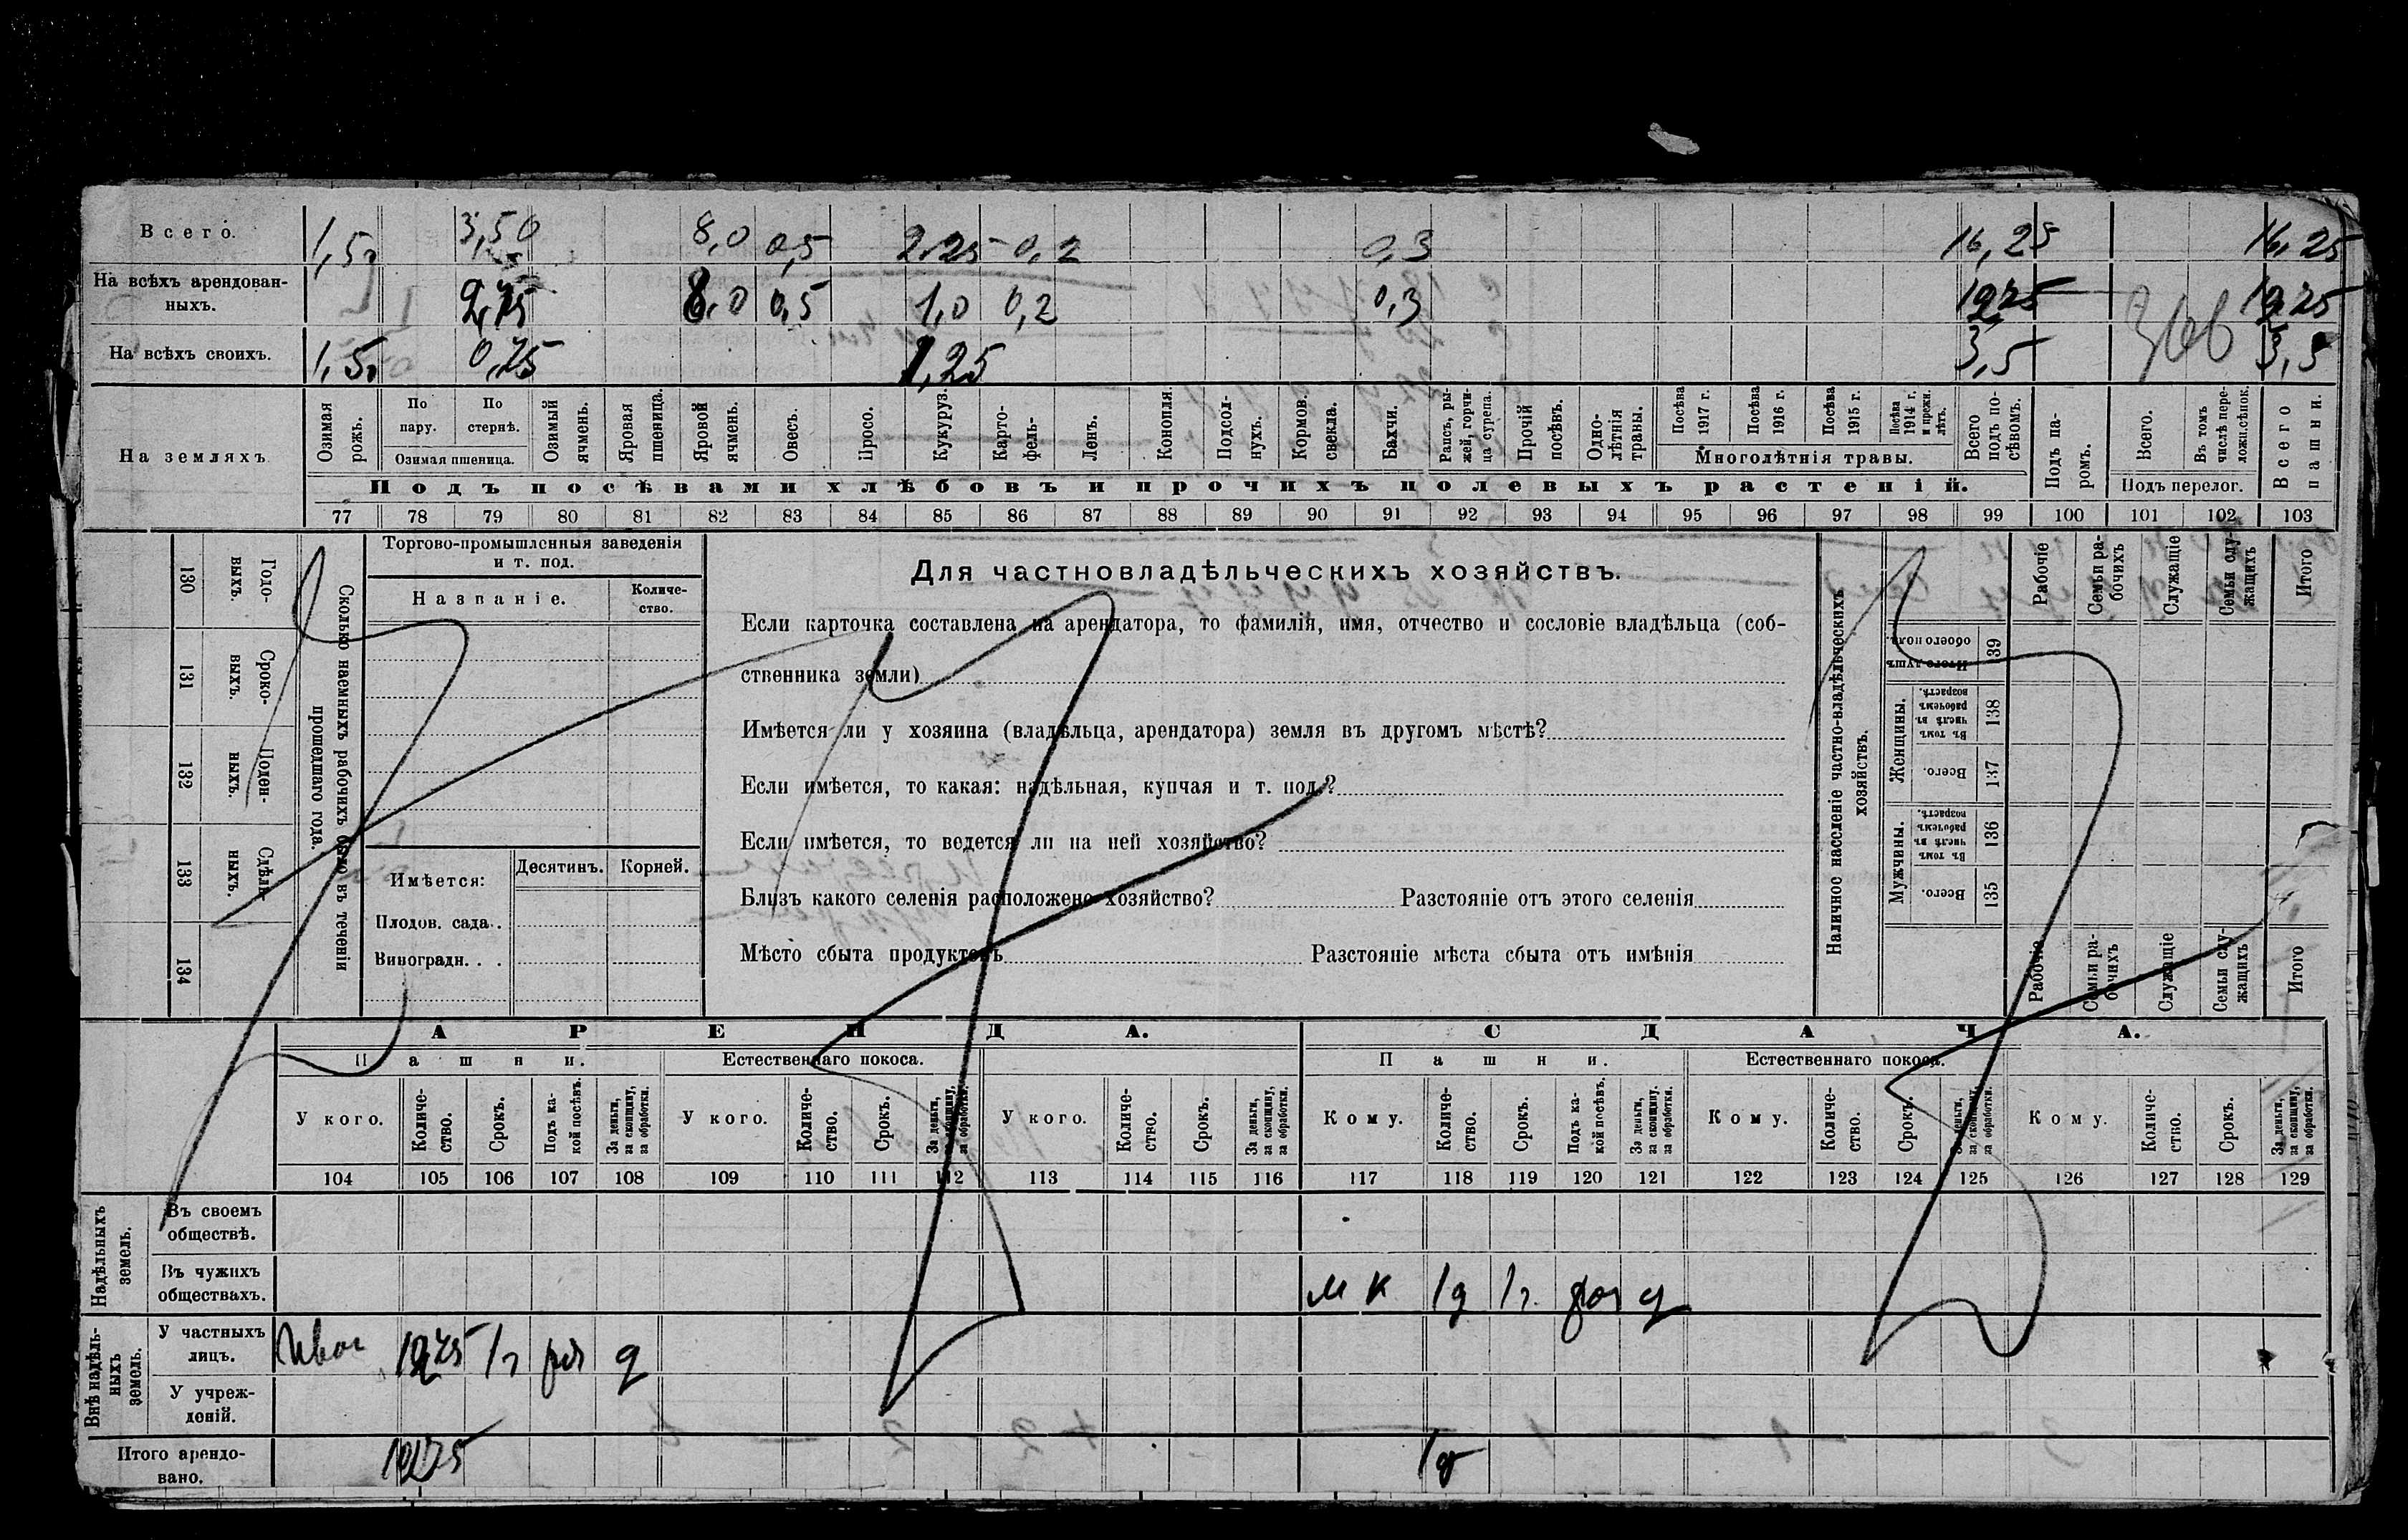 Всего. 1,50 3,50 8,0 0,5 2,25 0,2 0,3 16,25 16,25
На всѣхъ арендован-
ныхъ. 2,75 8,0 0,5 1,0 0,2 0,3 12,75 12,75
На всѣхъ своихъ. 1,50 0,75 1,25 3,5 3,5
На земляхъ
Озимая рожь.
По пару.
По стернѣ.
Озимая пшеница.
Озимый ячмень.
Яровая пшеница.
Яровой ячмень.
Овесъ.
Просо.
Кукуруз.
Карто-
фель.
Ленъ.
Конопля.
Подсол-
нухъ.
Кормов. свекла.
Бахчи.
Рапсъ, ры-
жей, горчи-
ца сурепа.
Прочій посѣвъ.
Одно-
лѣтнія травы.
Посѣва 1917 г.
Посѣва 1916 г.
Посѣва 1915 г.
Посѣва 1914 г. и прежн. лѣтъ.
Многолѣтнія травы.
Всего подъ по-
сѣвомъ.
Подъ па-
ромъ.
Всего.
Въ томъ числѣ пере-
ложн.сѣнок.
Подъ перелог.
Всего пашни.
Подъ посѣвами хлѣбовъ и прочихъ полевыхъ растеній.
77 78 79 80 81 82 83 84 85 86 87 88 89 90 91 92 93 94 95 96 97 98 99 100 101 102 103
130 Годо-
выхъ.
131 Сроко-
выхъ.
132 Поден-
ныхъ.
133 Сдѣль-
ныхъ.
134
Сколько наемныхъ рабочихъ было въ теченіи
прошедшаго года.
Торгово-промышленныя заведенія
и т. под.
Названіе.
Количе-
ство.
Имѣется: Десятинъ. Корней.
Плодов. сада. .
Виноградн. . .
Для частновладѣльческихъ хозяйствъ.
Если карточка составлена на арендатора, то фамилія, имя, отчество и сословіе владѣльца (соб-
ственника земли)
Имѣется ли у хозяина (владѣльца, арендатора) земля въ другомъ мѣстѣ?
Если имѣется, то какая: надѣльная, купчая и т. под.?
Если имѣется, то ведется ли на ней хозяйство?
Близъ какого селенія расположено хозяйство? Разстояніе отъ этого селенія
Мѣсто сбыта продуктовъ Разстояніе мѣста сбыта отъ имѣнія
Наличное населеніе частно-владѣльческихъ
хозяйствъ.
Рабочіе
Семьи ра-
бочихъ
Служащіе
Семьи слу-
жащихъ
Итого
Итого душъ обоего пола. 139
Женщины.
Въ томъ числѣ въ рабочемъ возрастѣ. 138
Всего. 137
Мужчины.
Въ томъ числѣ въ рабочемъ возрастѣ. 136
Всего. 135
Рабочіе
Семьи ра-
бочихъ
Служащіе
Семьи слу-
жащихъ
Итого
АРЕНДА. СДАЧА.
Пашни. Естественнаго покоса. Пашни. Естественнаго покоса.
У кого. Количе-
ство. Срокъ. Подъ ка-
кой посѣвъ. За деньги, за скопщину, за обработки.
У кого. Количе-
ство. Срокъ. За деньги, за скопщину, за обработки.
У кого. Количе-
ство. Срокъ. За деньги, за скопщину, за обработки.
Кому. Количе-
ство. Срокъ. Подъ ка-
кой посѣвъ. За деньги, за скопщину, за обработки.
Кому. Количе-
ство. Срокъ. За деньги, за скопщину, за обработки.
Кому. Количе-
ство. Срокъ. За деньги, за скопщину, за обработки.
104 105 106 107 108 109 110 111 112 113 114 115 116 117 118 119 120 121 122 123 124 125 126 127 128 129
Надѣльныхъ земель.
Въ своемъ
обществѣ.
Въ чужихъ
обществахъ. м к 1д 1г.
Внѣ надѣль-
ныхъ земель.
У частныхъ
лицъ. 12,75 1г д
У учреж-
деній.
Итого арендо-
вано. 12,75 1д